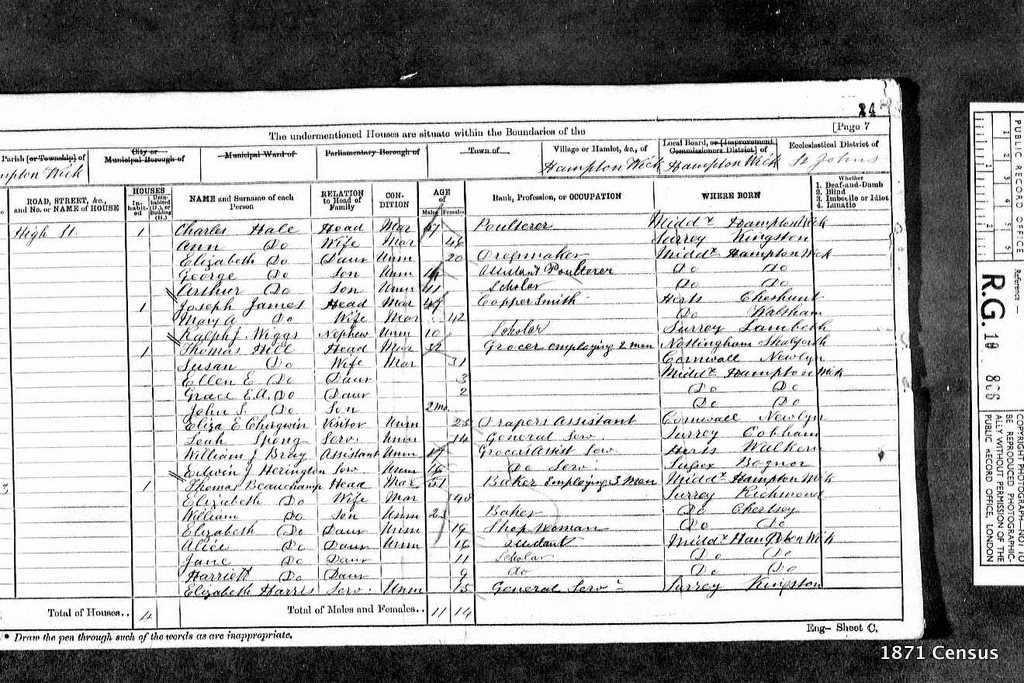 24
[Page 7
The undermentioned Houses are situate within the Boundaries of the
Parish [or Township] of City or Municipal Borough of Municipal Ward of Parliamentary Borough of Town of Village or Hamlet, &c., of Local Board, or [Improvement Commissioners District] of Ecclesiastical District of
Wick Hampton Wick Hampton Wick St Johns
ROAD, STREET, &c., and No. or NAME of HOUSE HOUSES Inhabited Uninhabited (U.), or Building (B.) NAME and Surname of each Person RELATION to Head of Family CONDITION AGE of Males Females Rank, Profession, or OCCUPATION WHERE BORN Whether 1. Deaf-and-Dumb 2. Blind 3. Imbecile or Idiot 4. Lunatic
High St. 1 Charles Hale Head Mar 47 Poulterer Middx Hampton Wick
Ann Do Wife Mar 46 Surrey Kingston
Elizabeth Do Daur Unm 20 Dressmaker Middx Hampton Wick
George Do Son Unm 14 Assistant Poulterer Do Do
Arthur Do Son Unm 11 Scholar Do Do
1 Joseph James Head Mar 47 Copper Smith Herts Cheshunt
Mary A Do Wife Mar 42 Do Walsham
Ralph J. Wiggs Nephew Unm 10 Scholar Surrey Lambeth
1 Thomas Hill Head Mar 32 Grocer employing 2 men Nottingham
Susan Do Wife Mar 31 Cornwall Newlyn
Ellen E Do Daur 3 Middx Hampton Wick
Grace E.A. Do Daur 2 Do Do
John S. Do Son 2 Mo. Do Do
Eliza E Chirgwin Visitor Unm 25 Drapers Assistant Cornwall Newlyn
Leah Spong Serv. Unm 14 General Serv. Surrey Cobham
William J Bray Assistant Unm 17 Grocers Assist Serv Herts Walkern
Edwin J Herington Serv Unm 16 Do Serv. Sussex Bognor
3 1 Thomas Beauchamp Head Mar 51 Baker Employing 3 Men Middx Hampton Wick
Elizabeth Do Wife Mar 48 Surrey Richmond
William Do Son Unm 23 Baker Do Chertsey
Elizabeth Do Daur Unm 19 Shop Woman Do Do
Alice Do Daur Unm 16 Middx Hampton Wick
Jane Do Daur 11 Scholar Do Do
Harriett Do Daur 9 do Do Do
Elizabeth Harris Serv. Unm 15 General Serv Surrey Kingston
Total of Houses.. 4 Total of Males and Females.. 11 14
* Draw the pen through such of the words as are inappropriate.
Eng- Sheet C.
PUBLIC RECORD OFFICE
1 2 3 4 5 6
Reference:-
R.G. 10 866
COPYRIGHT PHOTOGRAPH-NOT TO BE REPRODUCED PHOTOGRAPHICALLY WITHOUT PERMISSION OF THE PUBLIC RECORD OFFICE, LONDON
1871 Census